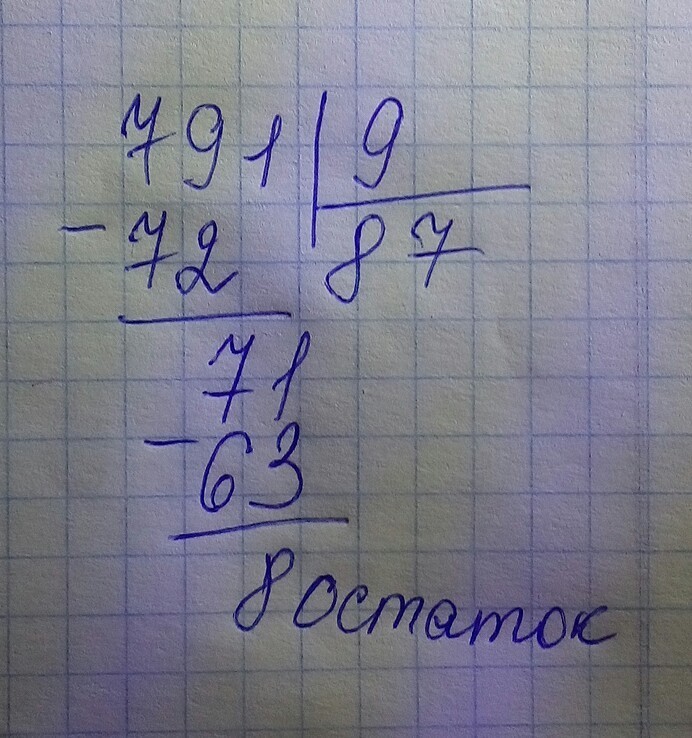 791 9
- 72 87
71
- 63
8 остаток